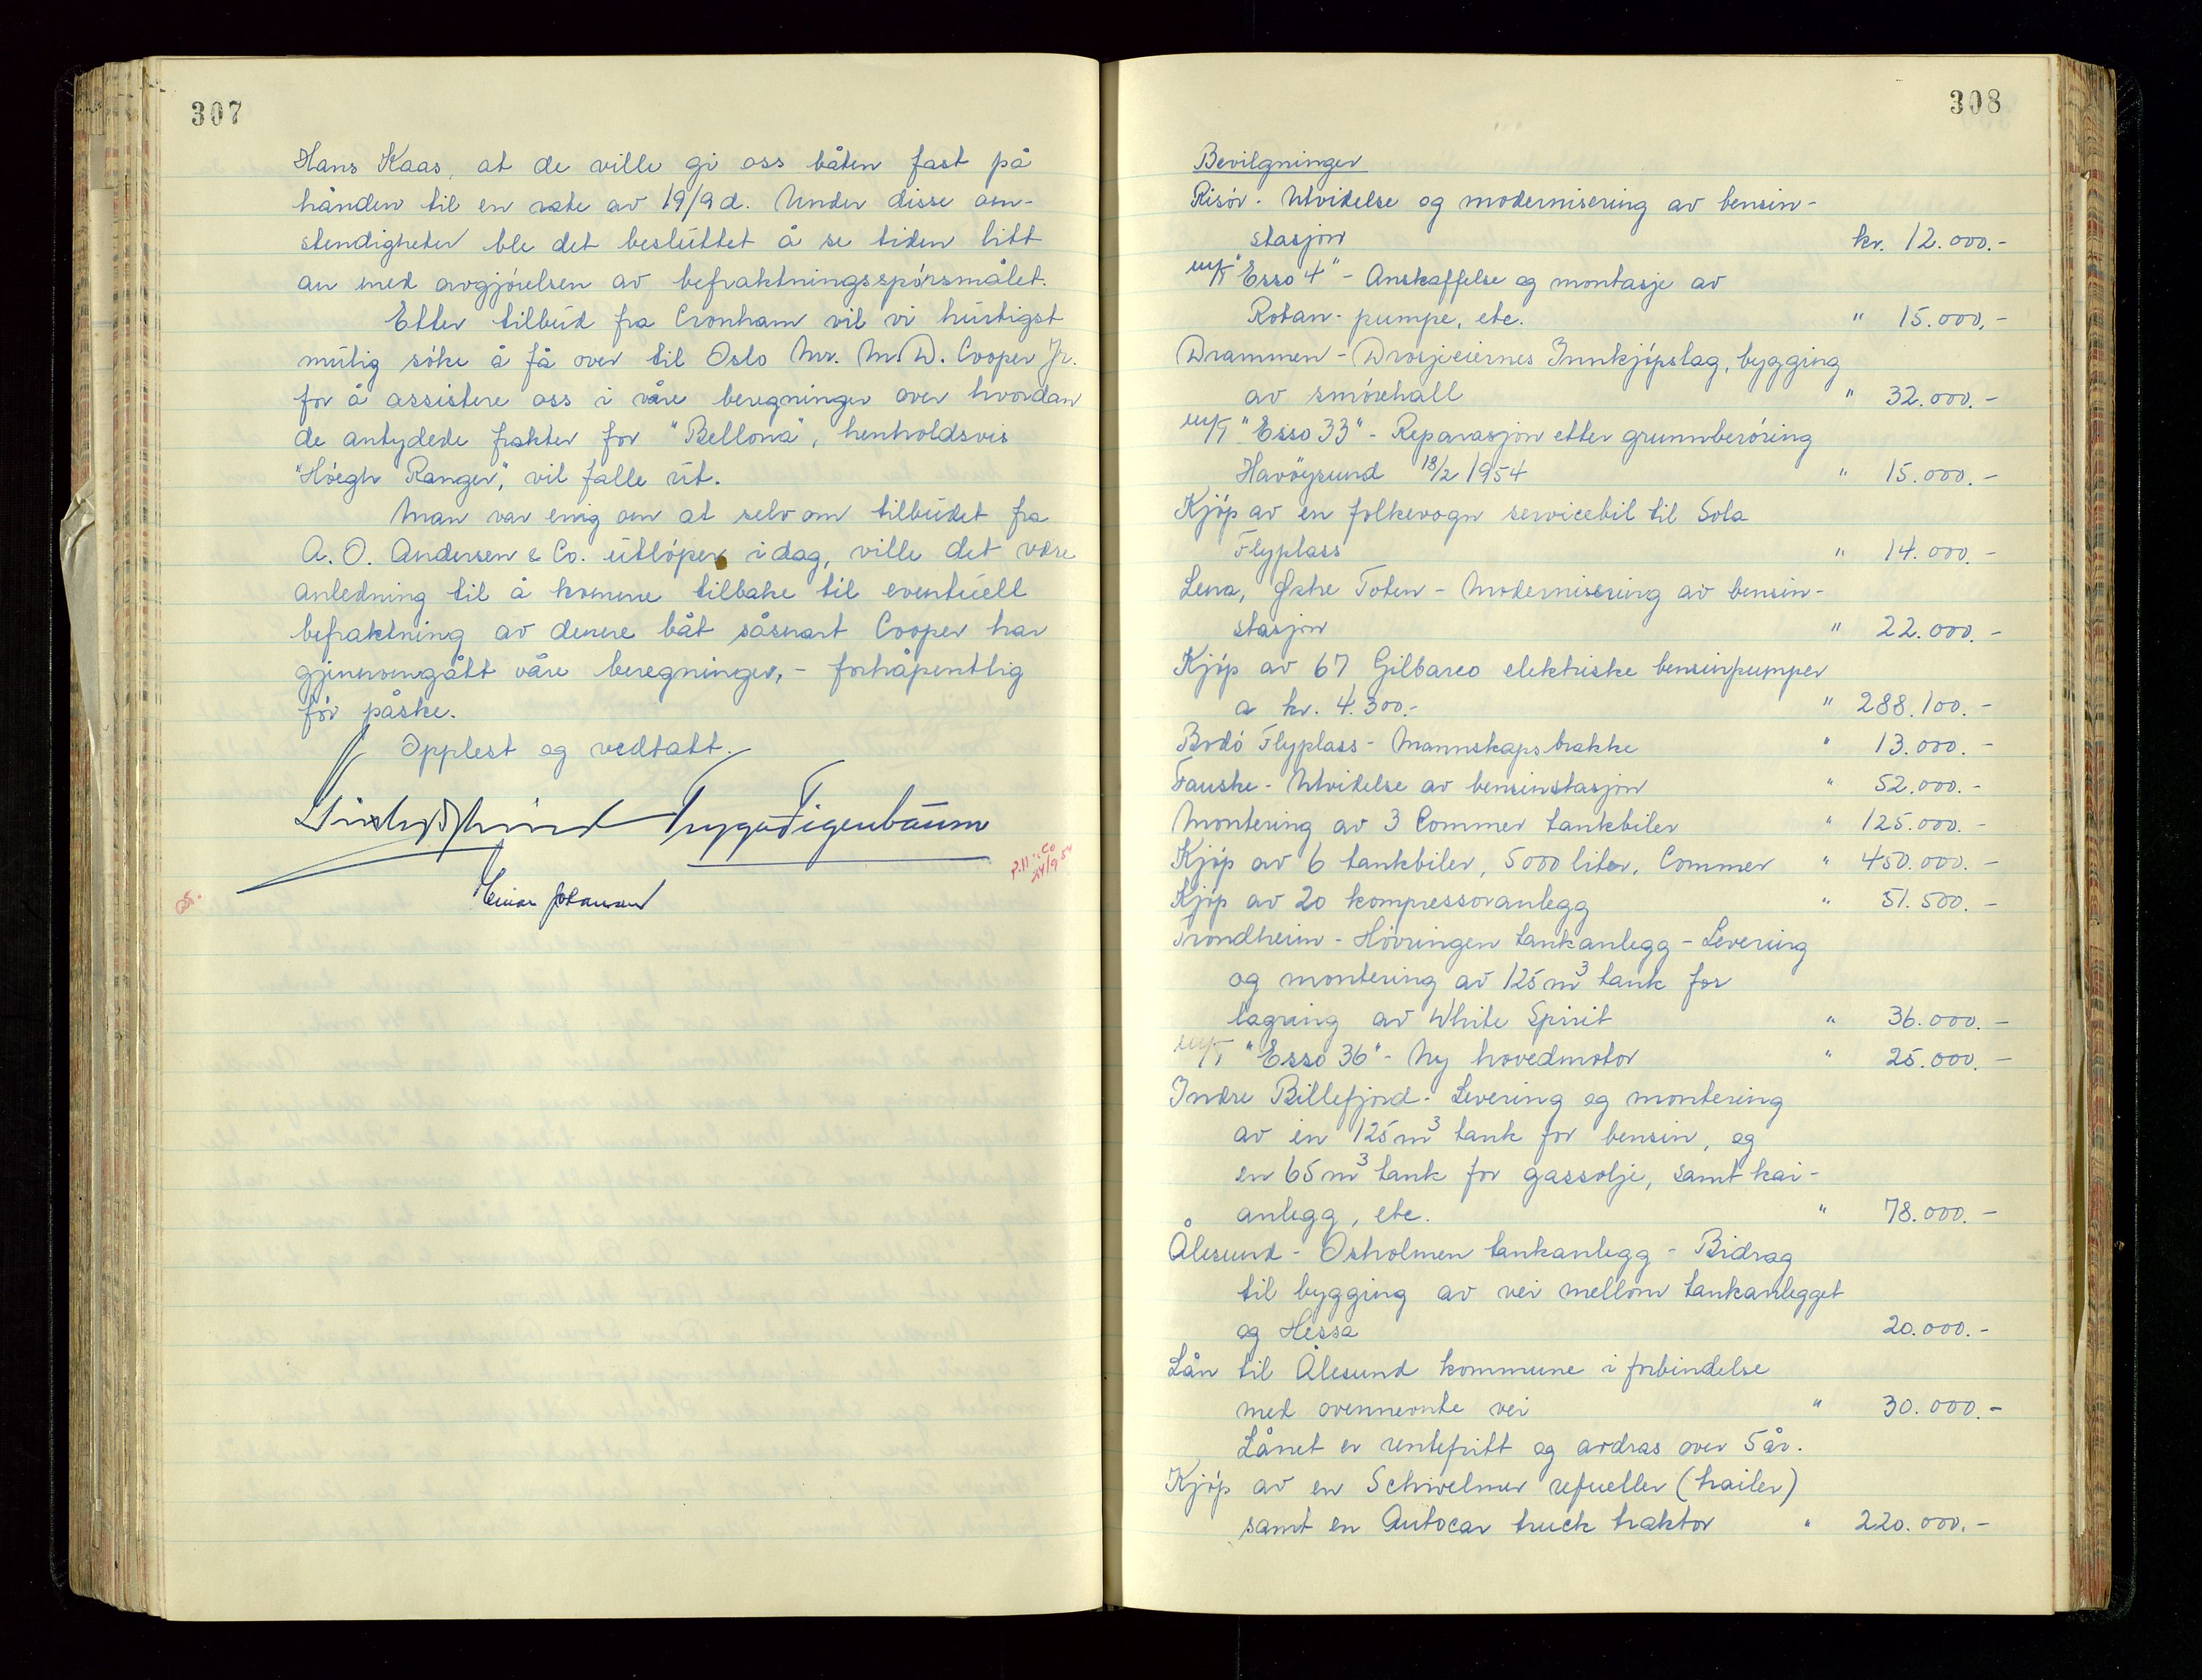 307
Hans Kaas, at de ville gi oss båten fast på
hånden til en rate av 19/9d. Under disse om-
stendigheter ble det besluttet å se tiden litt
an med avgjørelsen av befraktningsspørsmålet.
Etter tilbud fra Cronham vil vi hurtigst
mulig søke å få over til Oslo Mr. M.D. Cooper Jr.
for å assistere oss i våre beregninger over hvordan
de antydede frakter for "Bellona", henholdsvis
"Höegh Ranger", vil falle ut.
Man var enig om at selv om tilbudet fra
A. O. Andersen & Co. utløper idag, ville det være
anledning til å komme tilbake til eventuell
befraktning av denne båt såsnart Cooper har
gjennomgått våre beregninger, - forhåpentlig
før påske.
Opplest og vedtatt.
Trygve Figenbaum
Einar Johansen
308
Bevilgninger
Risør - Utvidelse og modernisering av bensin-
stasjon kr. 12.000.-
m/T "Esso 4" - Anskaffelse og montasje av
Rotan-pumpe, etc. " 15.000,-
Drammen - Drosjeeiernes Innkjøpslag, bygging
av smørehall " 32.000.-
m/T "Esso 33" - Reparasjon etter grunnberøring
Havöysund 18/2 1954 " 15.000.-
Kjøp av en folkevogn servicebil til Sola
Flyplass " 14.000.-
Lena, Østre Toten - Modernisering av bensin-
stasjon " 22.000.-
Kjøp av 67 Gilbarco elektriske bensinpumper
a kr. 4.300.- " 288.100.-
Bodø Flyplass - Mannskapsbrakke " 13.000.-
Fauske - Utvidelse av bensinstasjon " 52.000.-
Montering av 3 Commer tankbiler " 125.000.-
Kjøp av 6 tankbiler, 5000 liter, Commer " 450.000.-
Kjøp av 20 kompressoranlegg " 51.500.-
Trondheim - Høvringen tankanlegg - Levering
og montering av 125 m³ tank for
lagring av White Spirit " 36.000.-
m/T "Esso 36" - Ny hovedmotor " 25.000.-
Indre Billefjord - Levering og montering
av en 125 m³ tank for bensin, og
en 65 m³ tank for gassolje, samt kai-
anlegg, etc. " 78.000.-
Ålesund - Osholmen tankanlegg - Bidrag
til bygging av vei mellom tankanlegget
og Hessa 20.000.-
Lån til Ålesund kommune i forbindelse
med ovennevnte vei " 30.000.-
Lånet er rentefritt og avdras over 5 år.
Kjøp av en Schwelmer refueller (trailer)
samt en Autocar truck traktor " 220.000.-